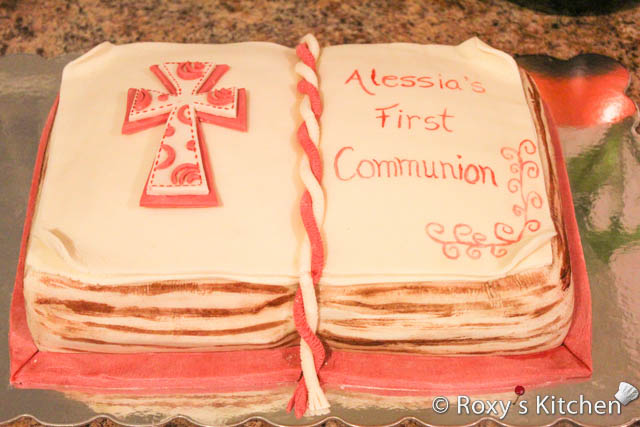 Alessia's
First
Communion
© Roxy's Kitchen